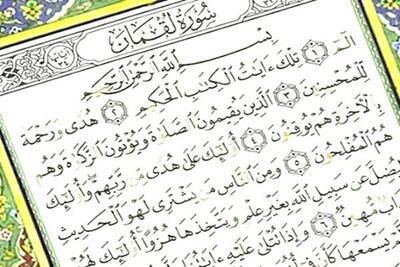 سُورَةُ لُقْمَانَ
بِسْمِ ٱللَّهِ ٱلرَّحْمَٰنِ ٱلرَّحِيمِ
الٓمٓ ١ تِلْكَ ءَايَٰتُ ٱلْكِتَٰبِ ٱلْحَكِيمِ ٢ هُدًى وَرَحْمَةً
لِّلْمُحْسِنِينَ ٣ ٱلَّذِينَ يُقِيمُونَ ٱلصَّلَوٰةَ وَيُؤْتُونَ ٱلزَّكَوٰةَ وَهُم
بِٱلْأَخِرَةِ هُمْ يُوقِنُونَ ٤ أُو۟لَٰٓئِكَ عَلَىٰ هُدًى مِّن رَّبِّهِمْ وَأُو۟لَٰٓئِكَ
هُمُ ٱلْمُفْلِحُونَ ٥ وَمِنَ ٱلنَّاسِ مَن يَشْتَرِى لَهْوَ ٱلْحَدِيثِ
لِيُضِلَّ عَن سَبِيلِ ٱللَّهِ بِغَيْرِ عِلْمٍ وَيَتَّخِذَهَا هُزُوًا أُو۟لَٰٓئِكَ لَهُمْ
مُّهِينٌ ٦ وَإِذَا تُتْلَىٰ عَلَيْهِ
يَسْمَعْهَا كَأَنَّ